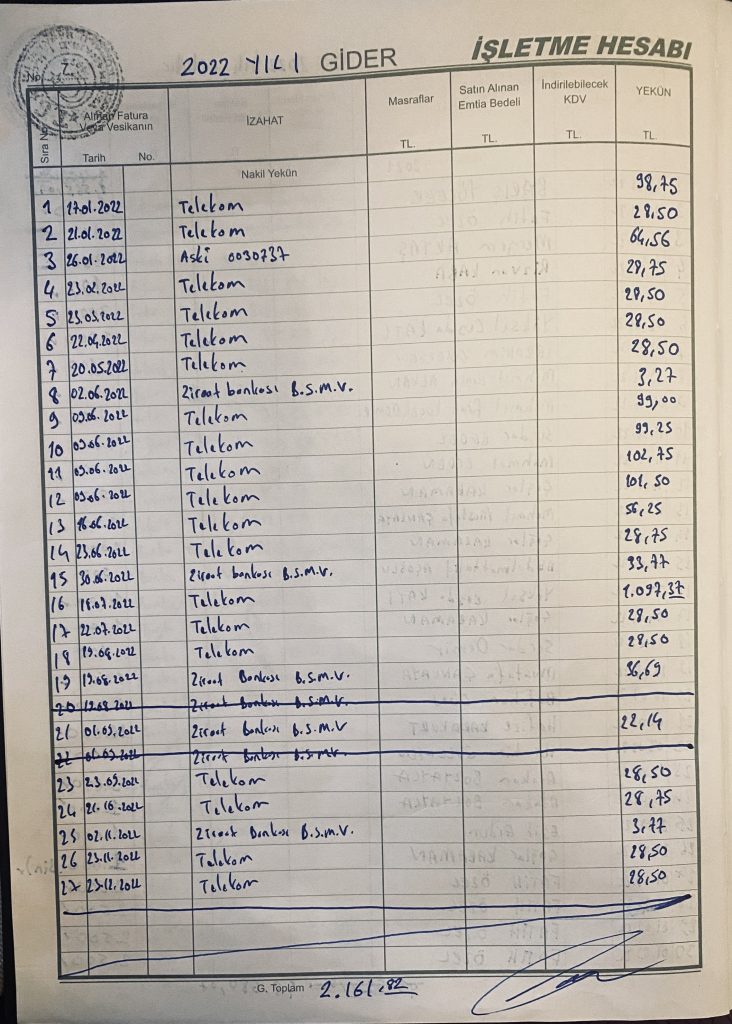 2022 YILI GİDER İŞLETME HESABI
No
Sıra No
Alınan Fatura Veya Vesikanın
Tarih No.
İZAHAT
Masraflar TL.
Satın Alınan Emtia Bedeli TL.
İndirilebilecek KDV TL.
YEKÜN TL.
Nakil Yekün
1 17.01.2022 Telekom 98,75
2 21.01.2022 Telekom 28,50
3 26.01.2022 Aski 0030737 64,56
4 23.02.2022 Telekom 28,75
5 23.03.2022 Telekom 28,50
6 22.04.2022 Telekom 28,50
7 20.05.2022 Telekom 28,50
8 02.06.2022 Ziraat bankası B.S.M.V. 3,27
9 09.06.2022 Telekom 99,00
10 09.06.2022 Telekom 99,25
11 09.06.2022 Telekom 102,75
12 09.06.2022 Telekom 101,50
13 16.06.2022 Telekom 56,25
14 23.06.2022 Telekom 28,75
15 30.06.2022 Ziraat bankası B.S.M.V. 33,77
16 18.07.2022 Telekom 1.097,37
17 22.07.2022 Telekom 28,50
18 19.08.2022 Telekom 28,50
19 19.08.2022 Ziraat Bankası B.S.M.V. 36,69
20 19.08.2022 Ziraat Bankası B.S.M.V.
21 01.09.2022 Ziraat Bankası B.S.M.V 22,14
22 01.09.2022 Ziraat Bankası B.S.M.V.
23 23.09.2022 Telekom 28,50
24 21.10.2022 Telekom 28,75
25 02.11.2022 Ziraat Bankası B.S.M.V. 3,77
26 23.11.2022 Telekom 28,50
27 23.12.2022 Telekom 28,50
G. Toplam 2.161.82